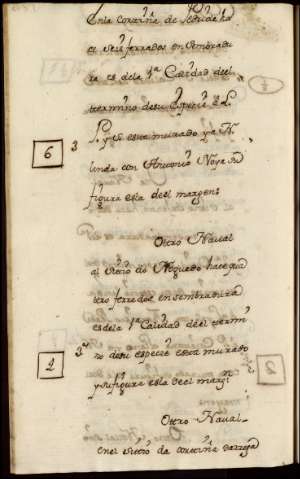 En la cortiña de
ce seis ferrados en sembradu
ra es de la 1ª Calidad de el
termino de su Especie
esta murado
6 3
linda con Antonio Noya
figura es la de el margen
Otro Naval
al Sitio de Noguedo hace qua
tro ferrados en sembradura
es de la 1ª Calidad de el termi
2 3
no de su especie esta murado
y su figura es la de el marg
Otro Naval
en el sitio da cortiña